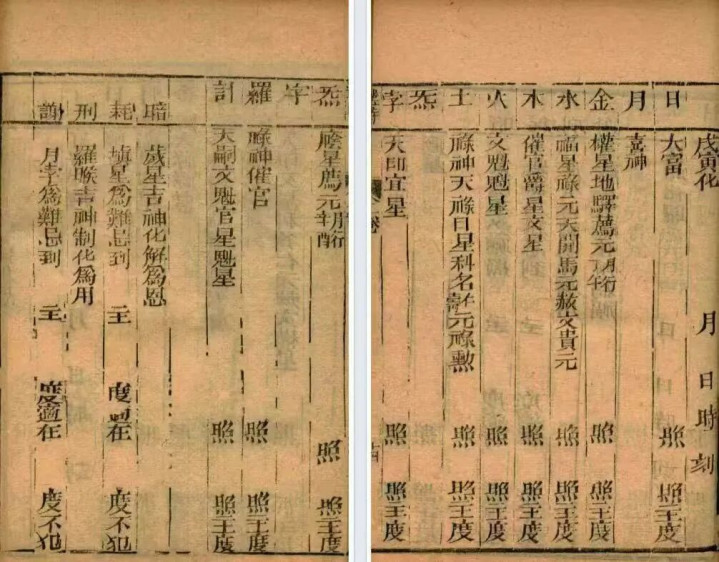 戊寅化 月 日時刻
日 大富 照 照主度
月 喜神
金 權星地驛薦元 照 照主度
水 福星祿元天開馬元赦文貴元 照 照主度
木 催官爵星文星 照 照主度
火 文魁魁星 照 照主度
土 祿神天祿日星科名 元祿勲 照 照主度
炁
孛 天印宜星 照 照主度
炁 陰星薦元 照 照主度
字
羅 祿神催官 照 照主度
計 天嗣文魁官星魁星 照 照主度
暗 歲星吉神化解為恩
耗 填星為難忌到 主 度 在 度不犯
刑 羅睺吉神制化為用
月孛為難忌到 主 度 在 度不犯